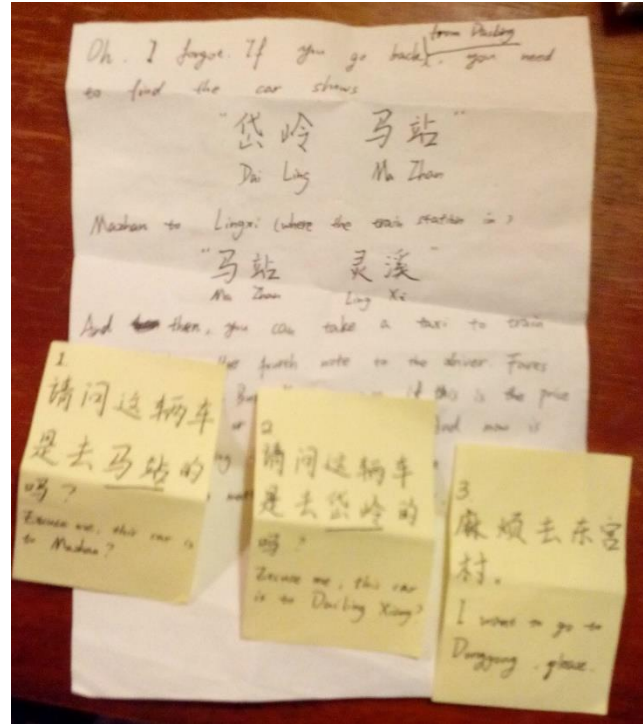 from Dailing
Oh. I forgot. If you go back, you need
to find the car shows
"岱岭 马站"
Dai Ling Ma Zhan
Mazhan to Lingxi (where the train station in)
"马站 灵溪"
Ma Zhan Ling Xi
And then, you can take a taxi to train
the fourth note to the driver Fares
if this is the price
now is
1
请问这辆车
是去马站的
吗？
Excuse me, this car is
to Mazhan?
2
请问这辆车
是去岱岭的
吗？
Excuse me, this car
is to Dailing Xiang?
3
麻烦去东宫
村。
I want to go to
Donggong, please.